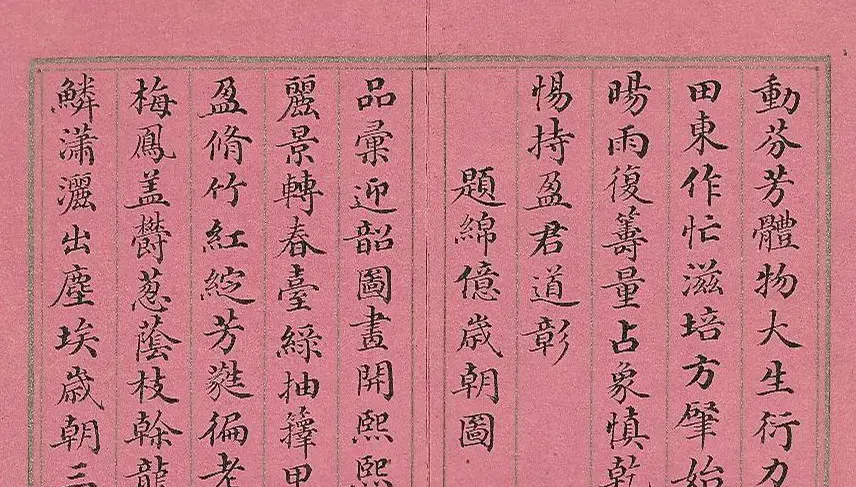 動芬芳體物大生衍力
田東作忙滋培方肇始
暘雨復籌量占象慎乾
惕持盈君道彰
題綿億歲朝圖
品彙迎韶圖畫開熙熙
麗景轉春臺綠抽籜甲
盈脩竹紅綻芳蕤徧老
梅鳳蓋欝葱蔭枝榦龍
鱗瀟灑出塵埃歲朝三